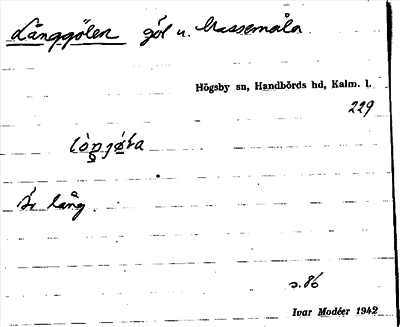 Långgölen göl u. Massemåla
Högsby sn, Handbörds hd, Kalm. l.
229
Är lång.
s. 86
Ivar Modéer 1942